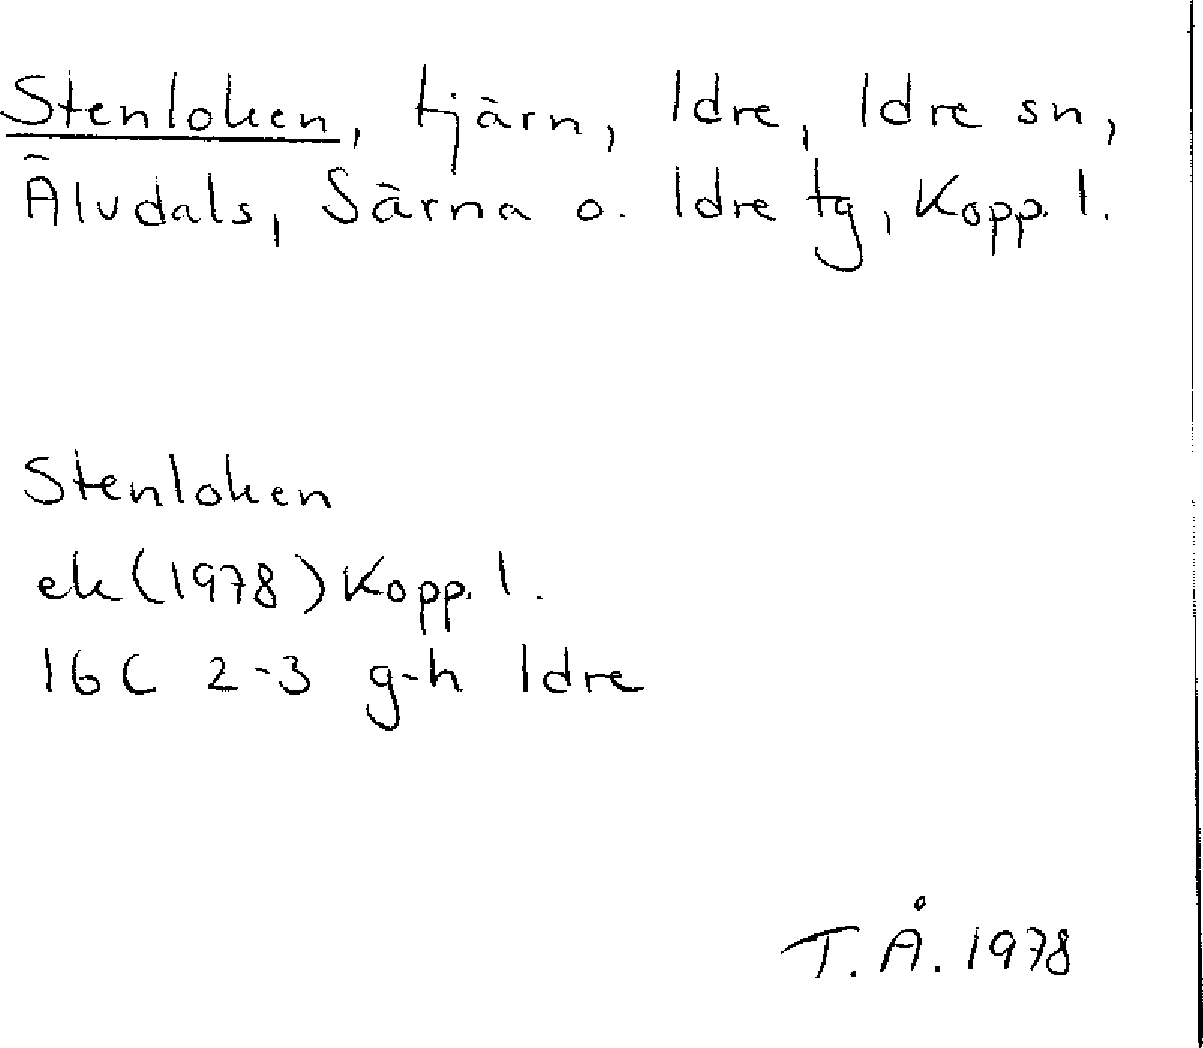 Stenloken, tjärn, Idre, Idre sn,
Älvdals, Särna o. Idre tg, Kopp. l.
Stenloken
ek (1978) Kopp. l.
16C 2-3 g-h Idre
T. Å. 1978